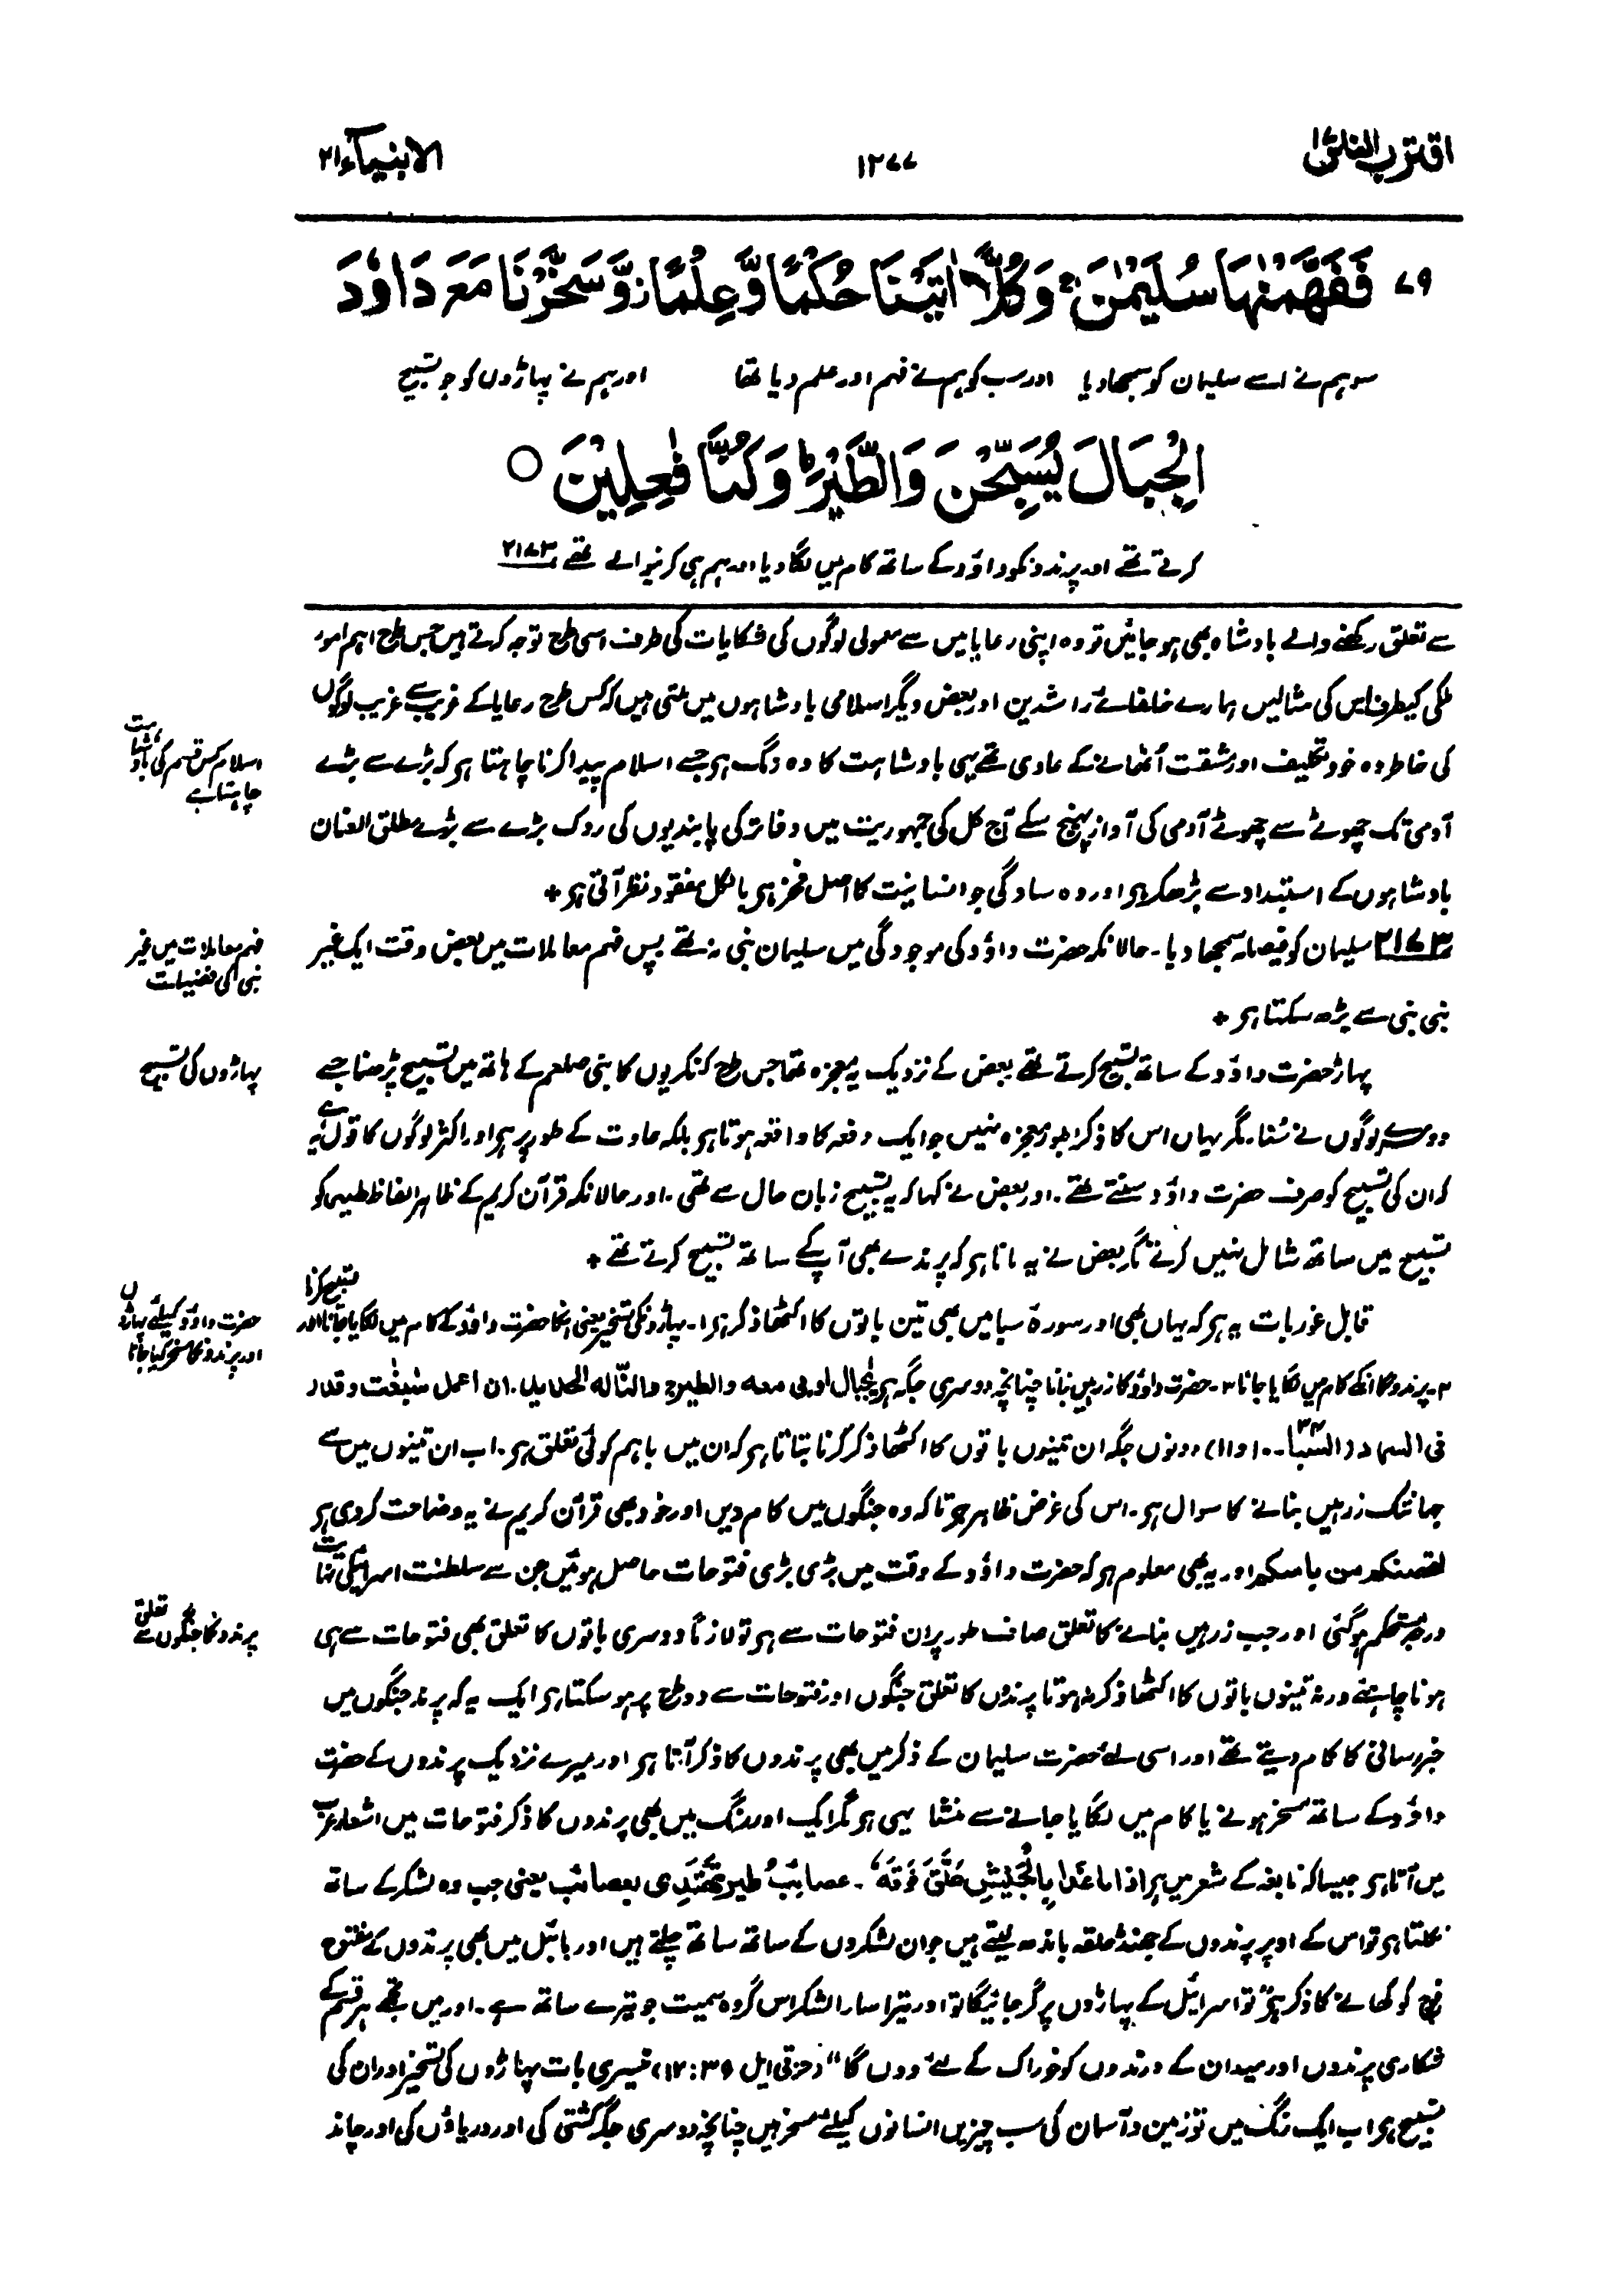 اقترب للناس ۱۷
۱۲۷۷
الانبیآء ۲۱
۷۹ فَفَهَّمْنٰهَا سُلَيْمٰنَ ۚ وَكُلًّا اٰتَيْنَا حُكْمًا وَّعِلْمًا ز وَّسَخَّرْنَا مَعَ دَاوٗدَ
سو ہم نے اسے سلیمان کو سمجھا دیا اور سب کو ہم نے فہم اور علم دیا تھا اور ہم نے پہاڑوں کو جو تسبیح
الْجِبَالَ يُسَبِّحْنَ وَالطَّيْرَ ؕ وَكُنَّا فٰعِلِيْنَ ○
کرتے تھے اور پرندونکو داؤد کے ساتھ کام میں لگا دیا اور ہم ہی کرنیوالے تھے ۲۱۷۳
سے تعلق رکھنے والے بادشاہ بھی ہو جائیں تو وہ اپنی رعایا میں سے معمولی لوگوں کی شکایات کی طرف اسی طرح توجہ کرتے ہیں جس طرح اہم امور
ملکی کیطرف اس کی مثالیں ہمارے خلفائے راشدین اور بعض دیگر اسلامی بادشاہوں میں ملتی ہیں کہ کس طرح رعایا کے غریب سے غریب لوگوں
کی خاطر وہ خود تکلیف اور مشقت اُٹھانے کے عادی تھے یہی بادشاہت کا وہ رنگ ہو جسے اسلام پیدا کرنا چاہتا ہو کہ بڑے سے بڑے
اسلام کس قسم کی بادشاہت
چاہتا ہے
آدمی تک چھوٹے سے چھوٹے آدمی کی آواز پہنچ سکے آج کل کی جمہوریت میں دفاتر کی پابندیوں کی روک بڑے سے بڑے مطلق العنان
بادشاہوں کے استبداد سے بڑھکر ہو اور وہ سادگی جو انسانیت کا اصل فخر ہو بالکل مفقود نظر آتی ہو +
۲۱۷۳ سلیمان کو فیصلہ سمجھا دیا۔ حالانکہ حضرت داؤد کی موجودگی میں سلیمان نبی نہ تھے پس فہم معاملات میں بعض وقت ایک غیر
فہم معاملات میں غیر
نبی کی فضیلت
نبی نبی سے بڑھ سکتا ہو +
پہاڑ حضرت داؤد کے ساتھ تسبیح کرتے تھے بعض کے نزدیک یہ معجزہ تھا جس طرح کنکریوں کا نبی صلعم کے ہاتھ میں تسبیح پڑھنا جسے
پہاڑوں کی تسبیح
دوسرے لوگوں نے سُنا۔ مگر یہاں اس کا ذکر بطور معجزہ نہیں جو ایک دفعہ کا واقعہ ہوتا ہو بلکہ عادت کے طور پر ہو اور اکثر لوگوں کا قول یہ ہے
کہ ان کی تسبیح کو صرف حضرت داؤد سنتے تھے۔ اور بعض نے کہا کہ یہ تسبیح زبان حال سے تھی۔ اور حالانکہ قرآن کریم کے ظاہر الفاظ طیر کو
تسبیح میں ساتھ شامل نہیں کرتے مگر بعض نے یہ مانا ہو کہ پرندے بھی آپ کے ساتھ تسبیح کرتے تھے +
قابل غور بات یہ ہو کہ یہاں بھی اور سورۂ سبا میں بھی تین باتوں کا اکٹھا ذکر ہو ۱۔ پہاڑونکی تسخیر یعنی انکا حضرت داؤد کے کام میں لگایا جانا اور تسبیح کرنا
حضرت داؤد کیلئے پہاڑوں
اور پرندونکا مسخر کیا جانا
۲۔ پرندونکا انکے کام میں لگایا جانا ۳۔ حضرت داؤد کا زرہیں بنانا چنانچہ دوسری جگہ ہو یٰجبال اوبی معہ والطیر ج والنّا لہ الحدید۔ ان اعمل سٰبغٰت وقدر
فی السرد (السّبا ۳۴۔۱۰ و ۱۱) دونوں جگہ ان تینوں باتوں کا اکٹھا ذکر کرنا بتاتا ہو کہ ان میں باہم کوئی تعلق ہو۔ اب ان تینوں میں سے
جہانتک زرہیں بنانے کا سوال ہو۔ اس کی غرض ظاہر ہو تا کہ وہ جنگوں میں کام دیں اور خود بھی قرآن کریم نے یہ وضاحت کر دی ہو
لتحصنکم من باسکم اور یہ بھی معلوم ہو کہ حضرت داؤد کے وقت میں بڑی بڑی فتوحات حاصل ہوئیں جن سے سلطنت اسرائیلی نہایت
درجہ مستحکم ہو گئی اور جب زرہیں بنانے کا تعلق صاف طور پر ان فتوحات سے ہو تو لازماً دوسری باتوں کا تعلق بھی فتوحات سے ہی
پرندونکا جنگوں سے تعلق
ہونا چاہئے ورنہ تینوں باتوں کا اکٹھا ذکر نہ ہوتا پرندوں کا تعلق جنگوں اور فتوحات سے دو طرح پر ہو سکتا ہو ایک یہ کہ پرند جنگوں میں
خبر رسانی کا کام دیتے تھے اور اسی لئے حضرت سلیمان کے ذکر میں بھی پرندوں کا ذکر آتا ہو اور میرے نزدیک پرندوں کے حضرت
داؤد کے ساتھ مسخر ہونے یا کام میں لگایا جانے سے منشا یہی ہو مگر ایک اور رنگ میں بھی پرندوں کا ذکر فتوحات میں اشعار عرب
میں آتا ہو جیسا کہ نابغہ کے شعر میں ہو اذا ما غدا بِالْجَيْشِ حَلَّقَ فَوْقَهٗ۔ عصائبُ طير تَهْتَدِى بعصائب یعنی جب وہ لشکر کے ساتھ
نکلتا ہو تو اس کے اوپر پرندوں کے جھنڈ حلقہ باندھ لیتے ہیں جو ان لشکروں کے ساتھ ساتھ چلتے ہیں اور بائبل میں بھی پرندوں کے مفتوح
فوج کو کھانے کا ذکر ہو "تو اسرائیل کے پہاڑوں پر گر جائیگا تو اور تیرا سارا لشکر اس گروہ سمیت جو تیرے ساتھ ہے۔ اور میں تجھے ہر قسم کے
شکاری پرندوں اور میدان کے درندوں کو خوراک کے لئے دوں گا" (حزقی ایل ۳۹: ۱۷) تیسری بات پہاڑوں کی تسخیر اور ان کی
تسبیح ہو اب ایک رنگ میں تو زمین و آسمان کی سب چیزیں انسانوں کیلئے مسخر ہیں چنانچہ دوسری جگہ کشتی کی اور دریاؤں کی اور چاند